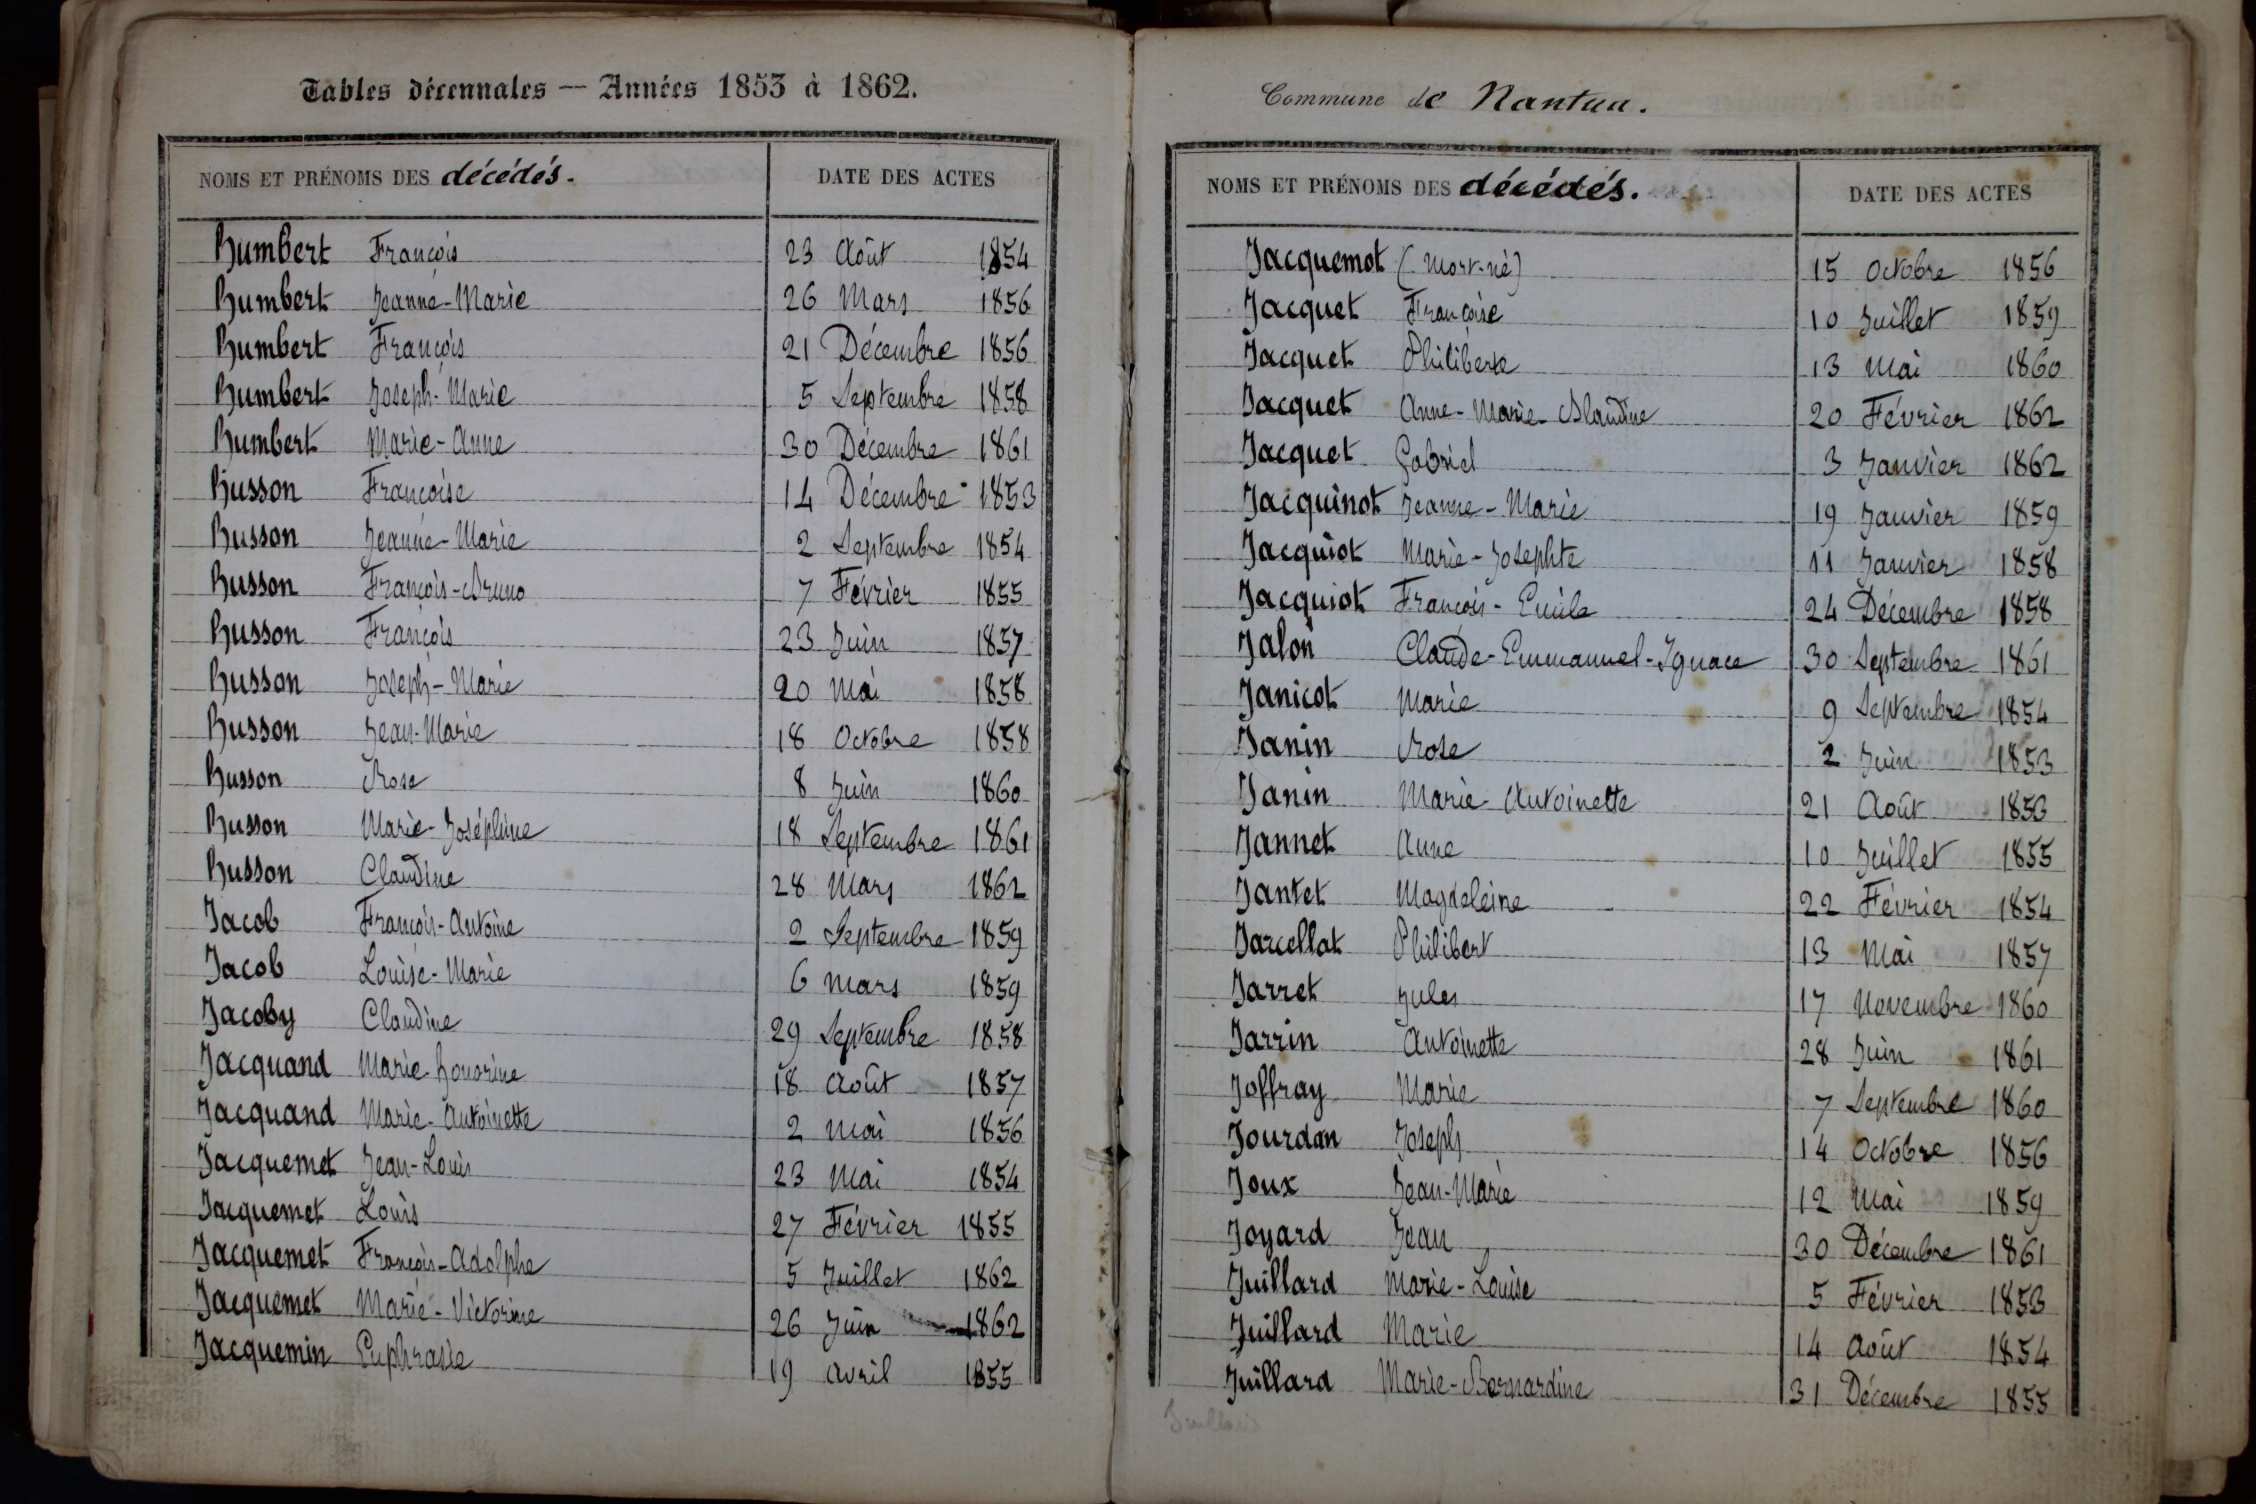 Tables décennales — Années 1853 à 1862.
NOMS ET PRÉNOMS DES décédés. DATE DES ACTES
Humbert François 23 Août 1854
Humbert Jeanne-Marie 26 Mars 1856
Humbert François 21 Décembre 1856
Humbert Joseph-Marie 5 Septembre 1858
Humbert Marie-Anne 30 Décembre 1861
Husson Françoise 14 Décembre 1853
Husson Jeanne-Marie 2 Septembre 1854
Husson François-Bruno 7 Février 1855
Husson François 23 Juin 1857
Husson Joseph-Marie 20 Mai 1858
Husson Jean-Marie 18 Octobre 1858
Husson Rose 8 Juin 1860
Husson Marie-Joséphine 18 Septembre 1861
Husson Claudine 28 Mars 1862
Jacob François-Antoine 2 Septembre 1859
Jacob Louise-Marie 6 Mars 1859
Jacoby Claudine 29 Septembre 1858
Jacquand Marie-Honorine 18 Août 1857
Jacquand Marie-Antoinette 2 Mai 1856
Jacquemet Jean-Louis 23 Mai 1854
Jacquemet Louis 27 Février 1855
Jacquemet François-Adolphe 5 Juillet 1862
Jacquemet Marie-Victorine 26 Juin 1862
Jacquemin Euphrasie 19 Avril 1855
Commune de Nantua.
NOMS ET PRÉNOMS DES décédés. DATE DES ACTES
Jacquemot (Mort-né) 15 Octobre 1856
Jacquet Françoise 10 Juillet 1859
Jacquet Philiberte 13 Mai 1860
Jacquet Anne-Marie-Blandine 20 Février 1862
Jacquet Gabriel 3 Janvier 1862
Jacquinot Jeanne-Marie 19 Janvier 1859
Jacquiot Marie-Josephte 11 Janvier 1858
Jacquiot François-Emile 24 Décembre 1858
Jalon Claude-Emmanuel-Ignace 30 Septembre 1861
Janicot Marie 9 Septembre 1854
Janin Rose 2 Juin 1853
Janin Marie Antoinette 21 Août 1853
Jannet Anne 10 Juillet 1855
Jantet Magdeleine 22 Février 1854
Jarcellat Philibert 13 Mai 1857
Jarret Jules 17 Novembre 1860
Jarrin Antoinette 28 Juin 1861
Joffray Marie 7 Septembre 1860
Jourdan Joseph 14 Octobre 1856
Joux Jean-Marie 12 Mai 1859
Joyard Jean 30 Décembre 1861
Juillard Marie-Louise 5 Février 1853
Juillard Marie 14 Août 1854
Juillard Marie-Bernardine 31 Décembre 1855